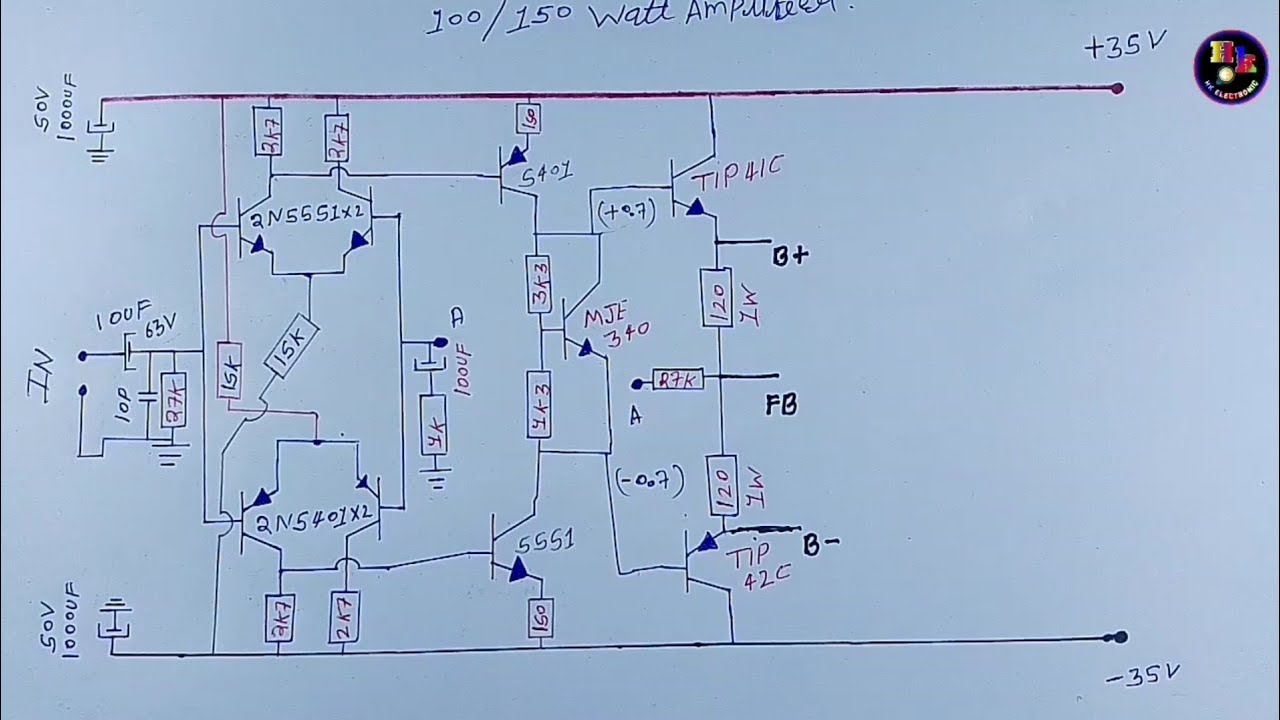 100/150 Watt Amplifier.
+35V
HK
HK ELECTRONIC
50V
1000UF
2K7
2K7
150
5401
TIP41C
2N5551X2
(+0.7)
B+
3K3
120
1W
MJE
340
10UF
63V
A
100UF
IN
15K
15K
27K
FB
A
10P
27K
1K
1K3
120
1W
(-0.7)
2N5401X2
5551
TIP
42C
B-
50V
1000UF
2K7
2K7
150
-35V